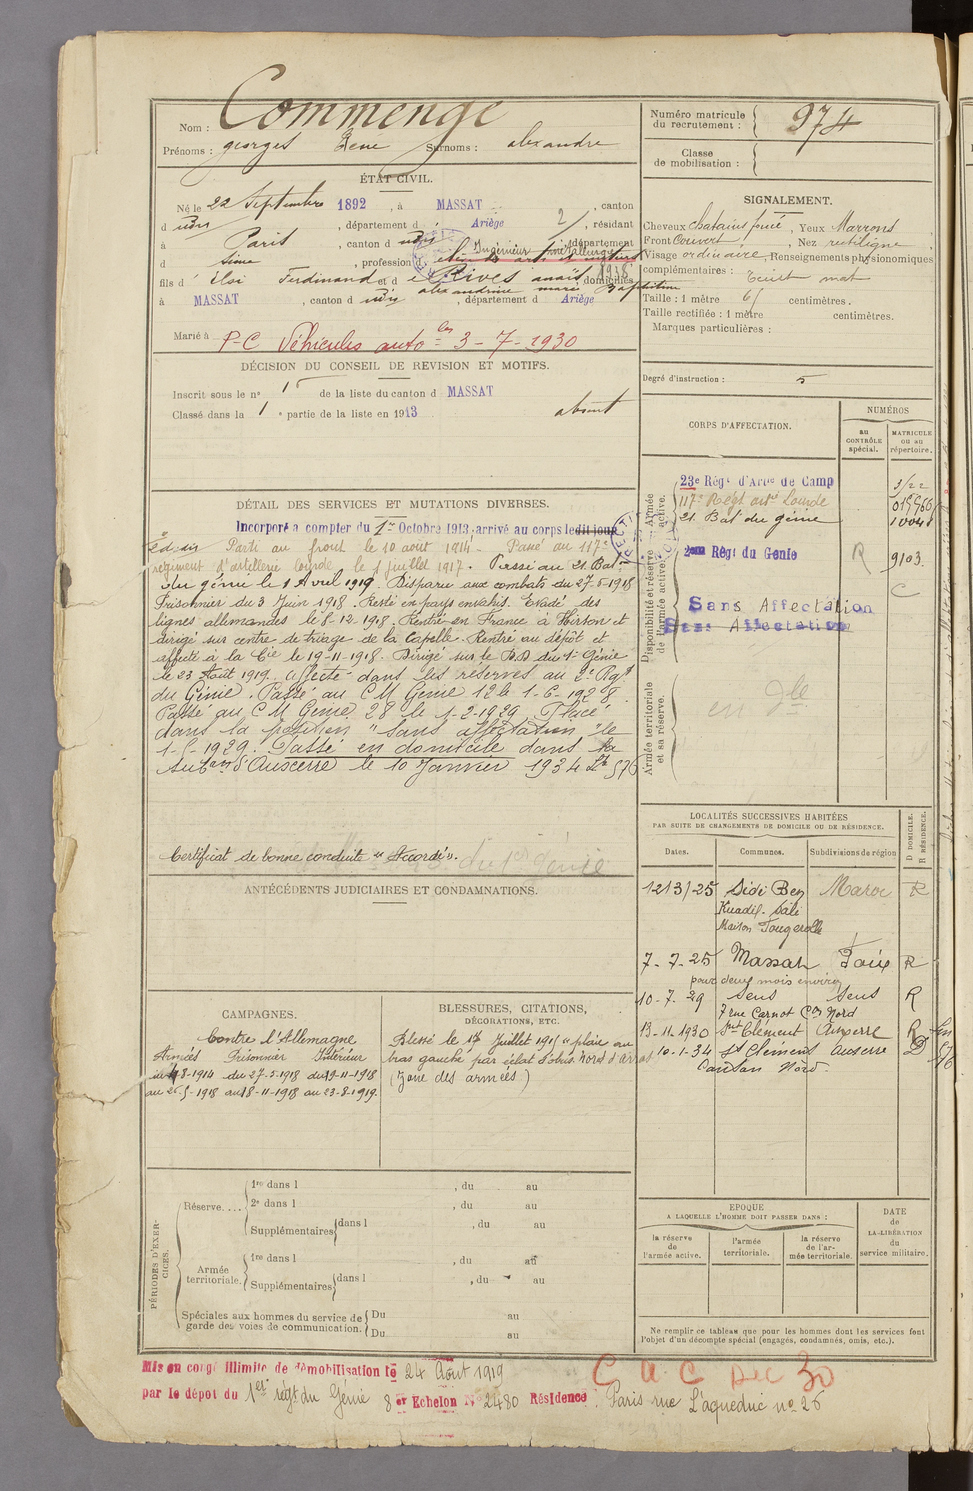 Nom : Commenge
Prénoms : georges René Surnoms : alexandre
ÉTAT CIVIL.
Né le 22 Septembre 1892, à MASSAT, canton
d udis, département d Ariège 2/, résidant
à Paris, canton d udis, département
d Seine, profession d
Ingénieur
fils d Eloi Ferdinand et d e Rives anaïs, domiciliés
alexandrine marie Baptistine
à MASSAT, canton d udis, département d Ariège
Marié à
P-C Véhicules auto les 3-7-1930
DÉCISION DU CONSEIL DE REVISION ET MOTIFS.
Inscrit sous le n° 15 de la liste du canton d MASSAT
Classé dans la 1 e partie de la liste en 1913 absent
DÉTAIL DES SERVICES ET MUTATIONS DIVERSES.
Incorporé à compter du 1er Octobre 1913, arrivé au corps ledit jour
Parti au front le 10 août 1914. Passé au 117e
régiment d'artillerie lourde le 1 juillet 1917. Passé au 21. Bat.
du génie le 1 Avril 1919. Disparu aux combats du 27-5-1918
Prisonnier du 3 Juin 1918. Resté en pays envahis. Evadé des
lignes allemandes le 8-12-1918. Rentré en France à Hirson et
dirigé sur centre de triage de la Capelle. Rentré au dépôt et
affecté à la Cie le 19-11-1918. Dirigé sur le B.D du 1er Génie
le 23 Août 1919. affecté dans les réserves au 2e Rgt
du Génie. Passé au C M Génie 12 le 1-6-1928.
Passé au C M Génie 28 le 1-2-1929. Placé
dans la position "sans affectation" le
1-5-1929. Passé en domicile dans la
Subon d'Auxerre le 10 Janvier 1934 576
Certificat de bonne conduite "Accordé".
du 1er génie
ANTÉCÉDENTS JUDICIAIRES ET CONDAMNATIONS.
CAMPAGNES.
Contre l'Allemagne
Armées Prisonnier Intérieur
du 4-8-1914 du 27-5-1918 du 19-11-1918
au 26-5-1918 au 18-11-1918 au 23-8-1919.
BLESSURES, CITATIONS,
DÉCORATIONS, ETC.
Blessé le 17 Juillet 1915 "plaie au
bras gauche par éclat d'obus nord d'arras
(zone des armées)
PÉRIODES D'EXERCICES.
Réserve....
1re dans l , du au
2e dans l , du au
Supplémentaires dans l , du au
Armée territoriale.
1re dans l , du au
Supplémentaires dans l , du au
Spéciales aux hommes du service de garde des voies de communication.
Du au
Du au
Numéro matricule du recrutement : 974
Classe de mobilisation :
SIGNALEMENT.
Cheveux chatains foncé, Yeux Marrons
Front Couvert, Nez rectiligne
Visage ordinaire, Renseignements physionomiques
complémentaires : Teint mat
Taille : 1 mètre 61 centimètres.
Taille rectifiée : 1 mètre centimètres.
Marques particulières :
Degré d'instruction : 5
CORPS D'AFFECTATION.
NUMÉROS
au CONTRÔLE spécial.
MATRICULE ou au répertoire.
Armée active.
23e Régt d'Artie de Camp
117e Régt artie Lourde
21. Bat du génie 10048
Disponibilité et réserve de l'armée active.
2ème Régt du Genie R 9103
C
Sans Affectation
Sans Affectation
Armée territoriale et sa réserve.
LOCALITÉS SUCCESSIVES HABITÉES
PAR SUITE DE CHANGEMENTS DE DOMICILE OU DE RÉSIDENCE.
D DOMICILE. R RÉSIDENCE.
Dates. Communes. Subdivisions de région
12/3/25 Sidi Ben Maroc R
Maison Fougerolle
7-7-25 Massat Foix R
pour deux mois environ
10-7-29 Sens Sens R
7 rue Carnot Con Nord
13-11-1930 St Clément Auxerre R
10-1-34 St Clément Auxerre D 576
Canton Nord
EPOQUE
A LAQUELLE L'HOMME DOIT PASSER DANS :
la réserve de l'armée active.
l'armée territoriale.
la réserve de l'armée territoriale.
DATE de LA LIBÉRATION du service militaire.
Ne remplir ce tableau que pour les hommes dont les services font
l'objet d'un décompte spécial (engagés, condamnés, omis, etc.).
Mis en congé illimité de démobilisation le 24 Août 1919
C.U.C Dec 30
par le dépôt du 1er régt du Génie 8 er Echelon N° 2480 Résidence : Paris rue L'aqueduc no 26